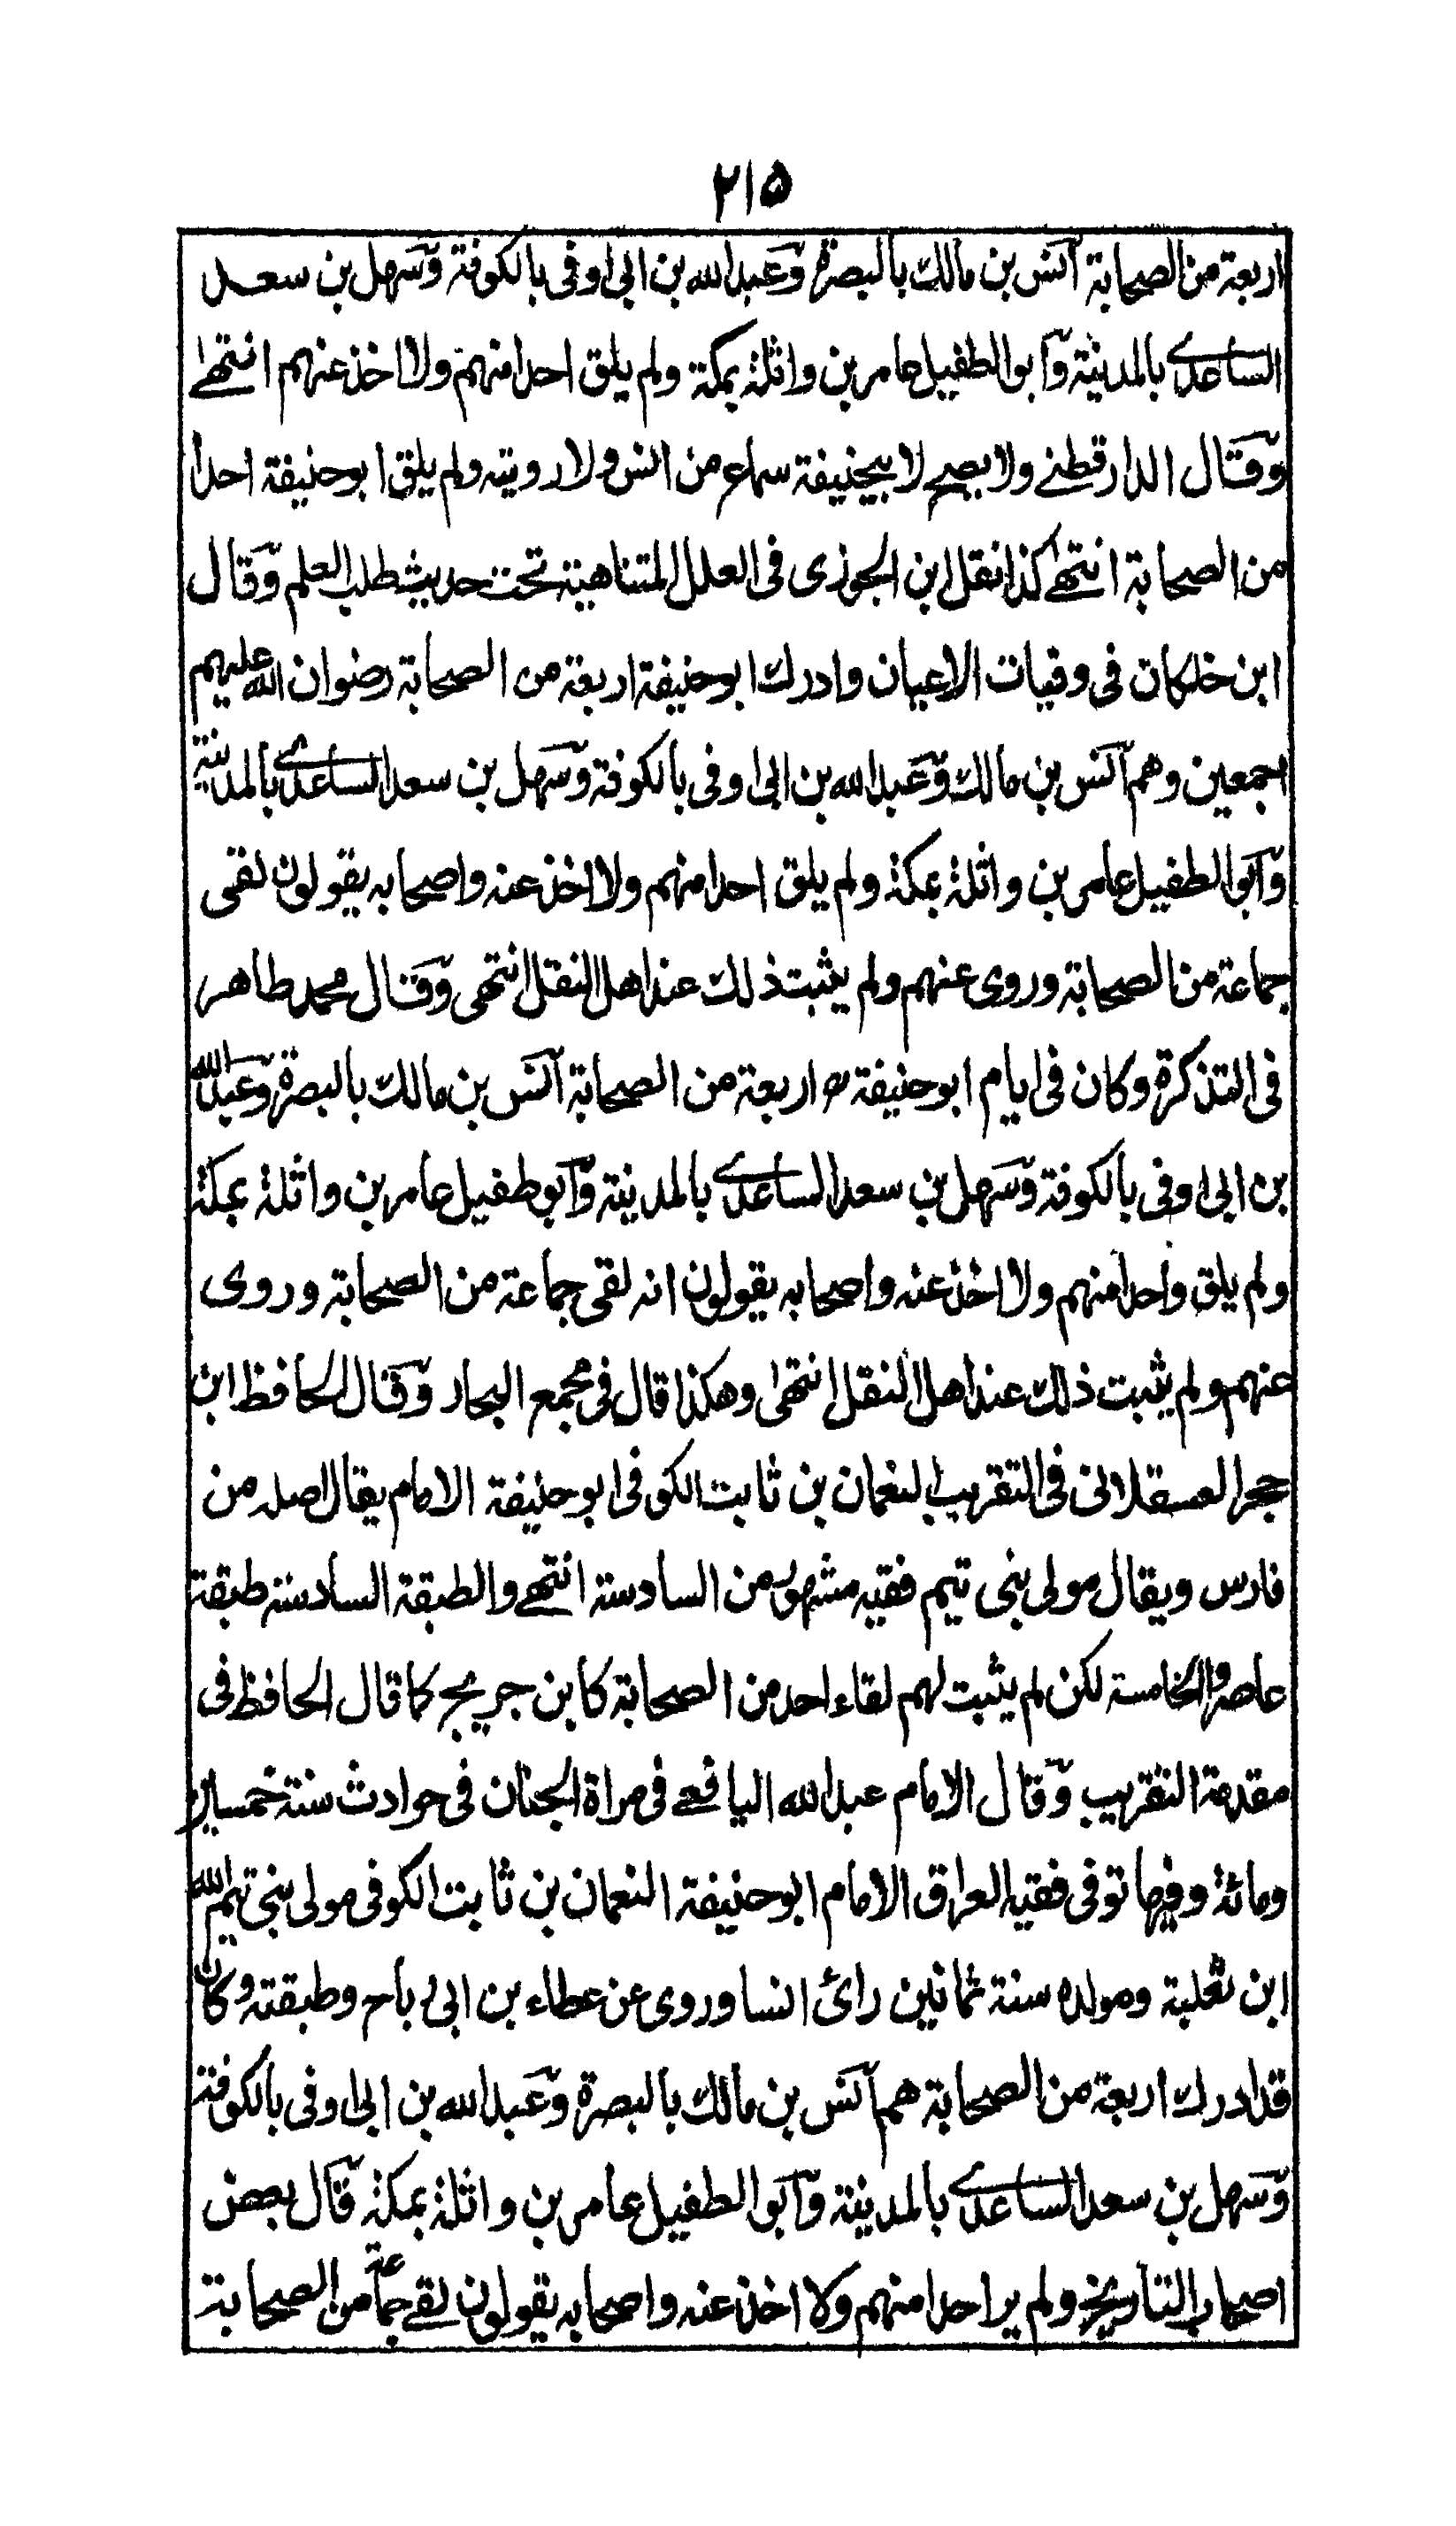 ۲۱۵
اربعة من الصحابة انس بن مالك بالبصرة وعبد الله بن ابى اوفى بالكوفة وسهل بن سعد
الساعدے بالمدينة وابو الطفيل عامر بن واثلة بمكة ولم يلق احدا منهم ولا اخذ عنهم انتهے
وقال الدارقطنے ولا يصح لابيحنيفة سماع من انس ولا رويته ولم يلق ابو حنيفة احدا
من الصحابة انتهے كذا نقل ابن الجوزى فى العلل المتناهية تحت حديث طلب العلم وقال
ابن خلكان فى وفيات الاعيان وادرك ابو حنيفة اربعة من الصحابة رضوان الله عليهم
اجمعين وهم انس بن مالك وعبد الله بن ابى اوفى بالكوفة وسهل بن سعد الساعدے بالمدينة
وابو الطفيل عامر بن واثلة بمكة ولم يلق احدا منهم ولا اخذ عنه واصحابه يقولون لقى
جماعة من الصحابة وروى عنهم ولم يثبت ذلك عند اهل النقل انتهى وقال محمد طاهر
فى التذكرة وكان فى ايام ابو حنيفة رح اربعة من الصحابة انس بن مالك بالبصرة وعبد الله
بن ابى اوفى بالكوفة وسهل بن سعد الساعدے بالمدينة وابو طفيل عامر بن واثلة بمكة
ولم يلق واحدا منهم ولا اخذ عنه واصحابه يقولون انه لقى جماعة من الصحابة وروى
عنهم ولم يثبت ذلك عند اهل النقل انتهى وهكذا قال فى مجمع البحار وقال الحافظ ابن
حجر العسقلانى فى التقريب النعمان بن ثابت الكوفى ابو حنيفة الامام يقال اصله من
فارس ويقال مولى بنى تيم فقيه مشهور من السادسة انتهے والطبقة السادسة طبقة
عاصروا الخامسة لكن لم يثبت لهم لقاء احد من الصحابة كابن جريج كما قال الحافظ فى
مقدمة التقريب وقال الامام عبد الله اليافعے فى مراة الجنان فى حوادث سنة خمسين
ومائة وفيها توفى فقيه العراق الامام ابو حنيفة النعمان بن ثابت الكوفى مولى بنى تيم الله
ابن ثعلبة ومولده سنة ثمانين رائ انسا وروى عن عطاء بن ابى رباح وطبقته وكان
قد ادرك اربعة من الصحابة هم انس بن مالك بالبصرة وعبد الله بن ابى اوفى بالكوفة
وسهل بن سعد الساعدے بالمدينة وابو الطفيل عامر بن واثلة بمكة قال بعض
اصحاب التاريخ ولم ير احدا منهم ولا اخذ عنه واصحابه يقولون لقے جماعة من الصحابة